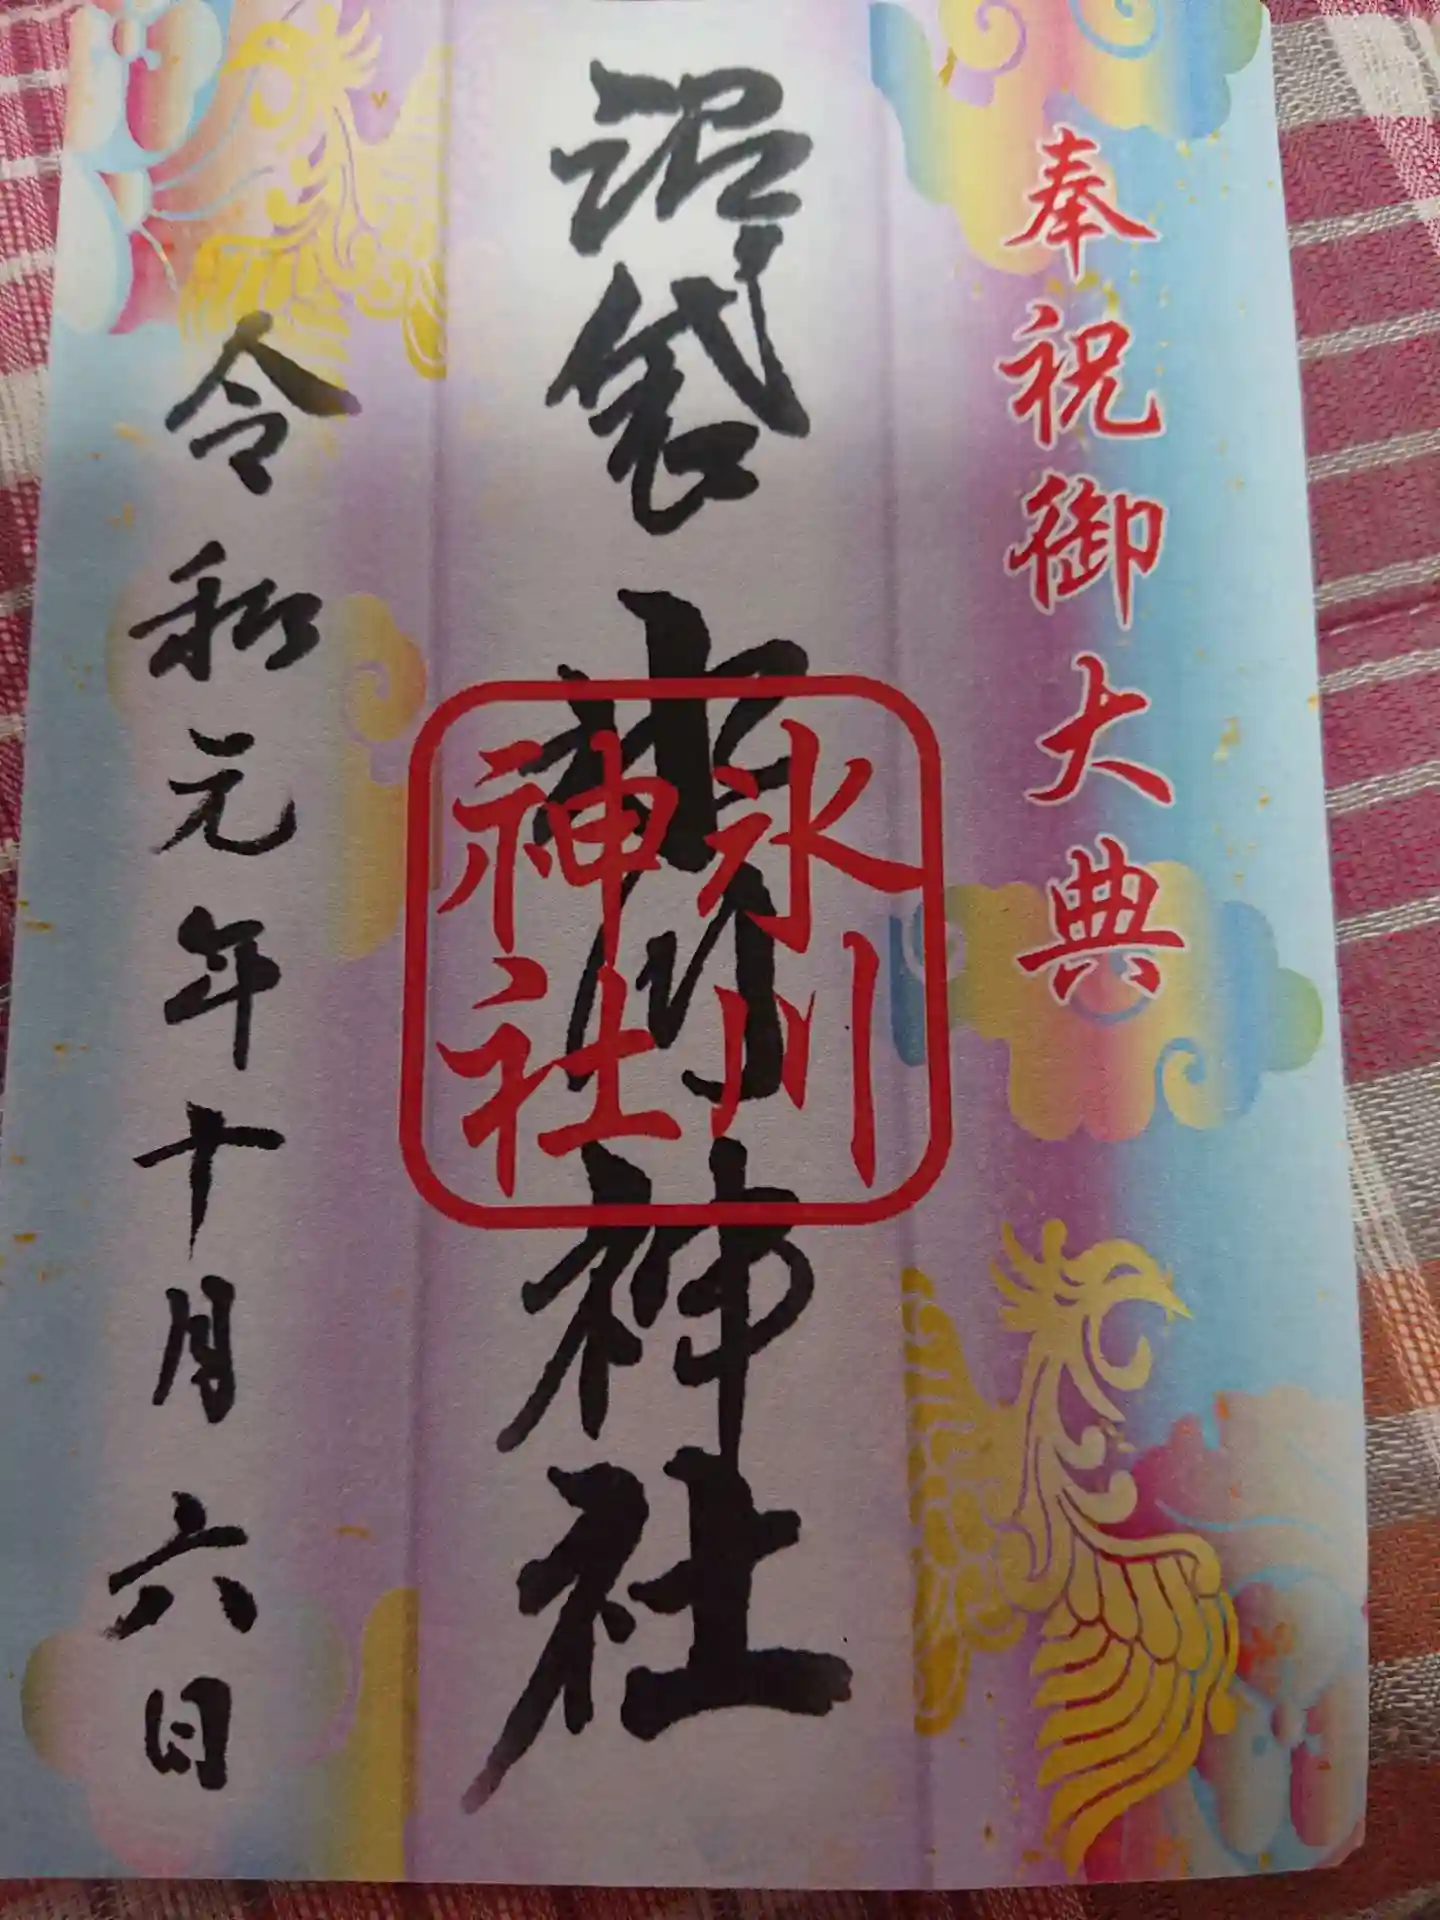 奉祝御大典
沼袋氷川神社
氷川
神社
令和元年十月六日